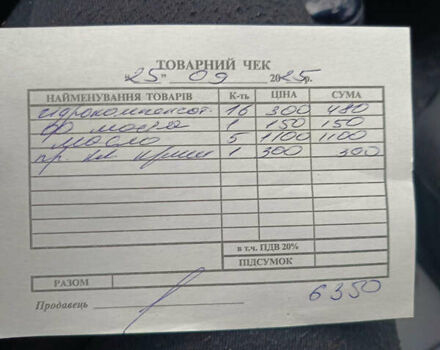 ТОВАРНИЙ ЧЕК
"25" 09 2025р.
НАЙМЕНУВАННЯ ТОВАРІВ К-ть ЦІНА СУМА
гидрокомпенсат. 16 300 480
1 150 150
масло 5 1100 1100
пр. кл. крышки 1 300 300
в т.ч. ПДВ 20%
ПІДСУМОК
РАЗОМ
Продавець
6350